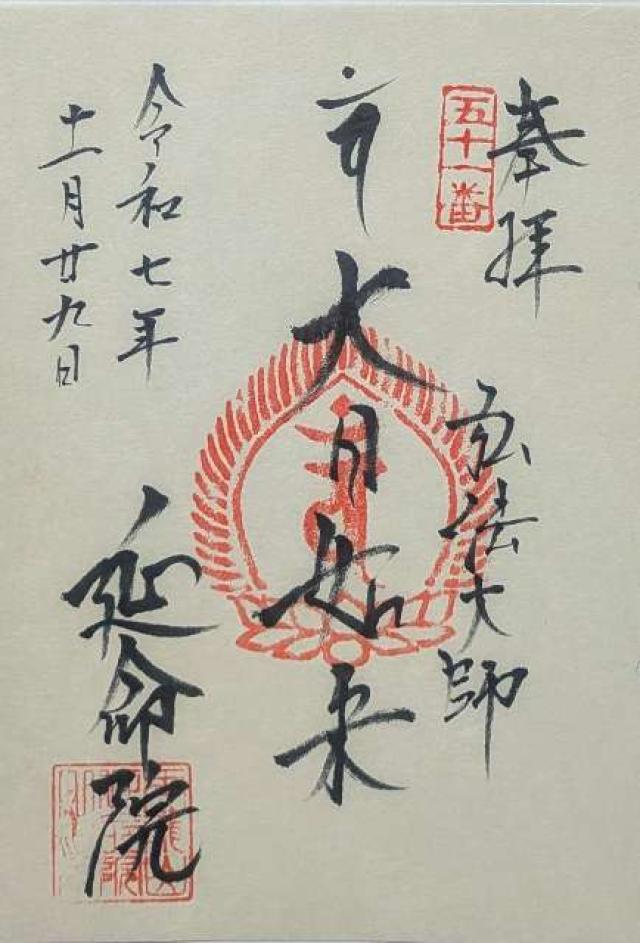 奉拝
五十一番
弘法大師
大日如来
令和七年
十一月廿九日
延命院